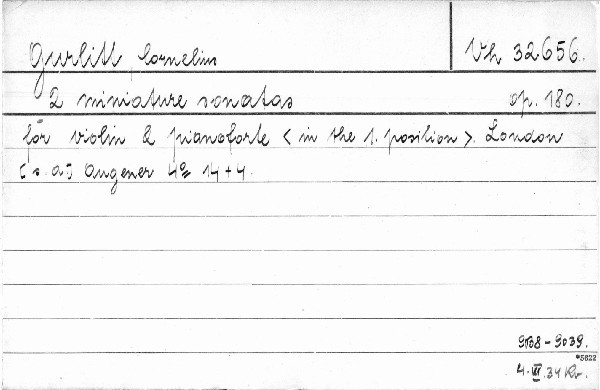 Gurlitt Cornelius Vh 32656.
2 miniature sonatas op. 180.
for violin & pianoforte < in the 1. position >. London
[s. a.] Augener 4º 14 + 4.
9038 - 9039.
*5622
4. III. 34 Kr.